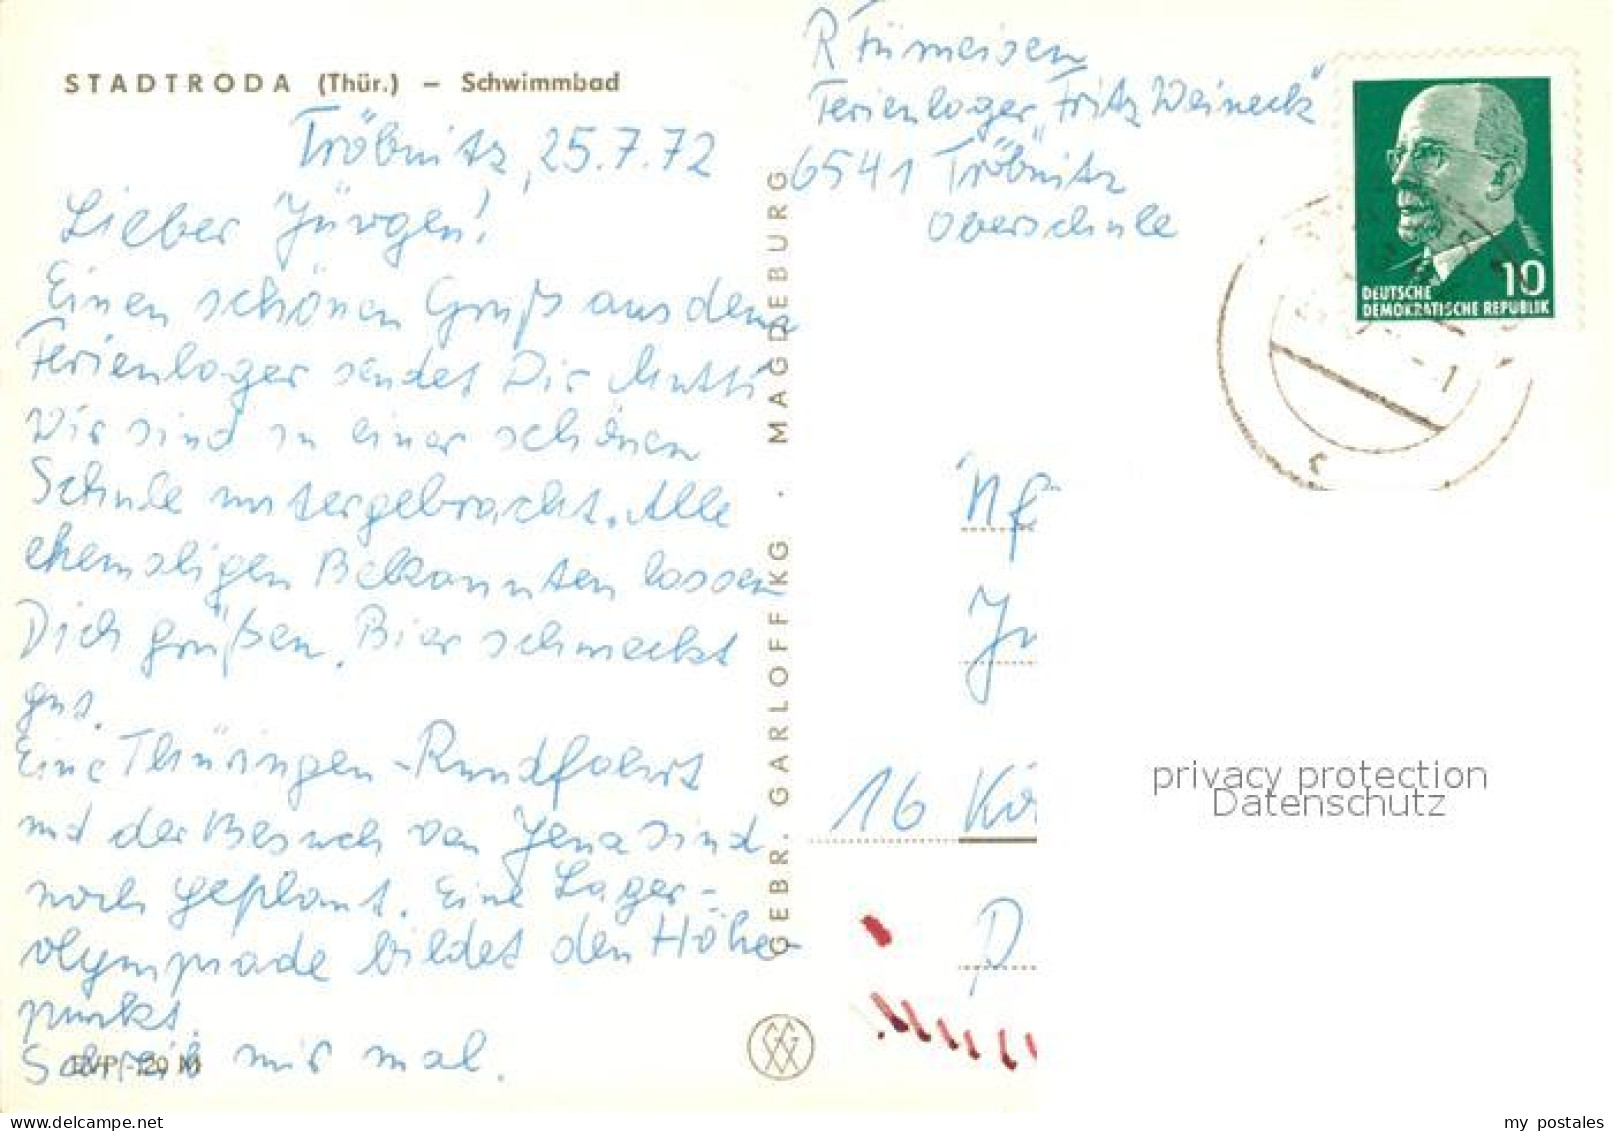 STADTRODA (Thür.) – Schwimmbad
Tröbnitz, 25.7.72
Lieber Jürgen!
Einen schönen Gruß aus dem
Ferienlager sendet Dir Mutti
Wir sind in einer schönen
Schule untergebracht. Alle
ehemaligen Bekannten lassen
Dich grüßen. Bier schmeckt
gut.
Eine Thüringen-Rundfahrt
und der Besuch von Jena sind
noch geplant. Eine Lager-
olympiade bildet den Höhe-
punkt.
Schreib mir mal.
EVP -,20 M
GEBR. GARLOFF KG · MAGDEBURG
Ferienlager „Fritz Weineck"
6541 Tröbnitz
Oberschule
10
DEUTSCHE
DEMOKRATISCHE REPUBLIK
16 Kö
privacy protection
Datenschutz
www.delcampe.net
my_postales